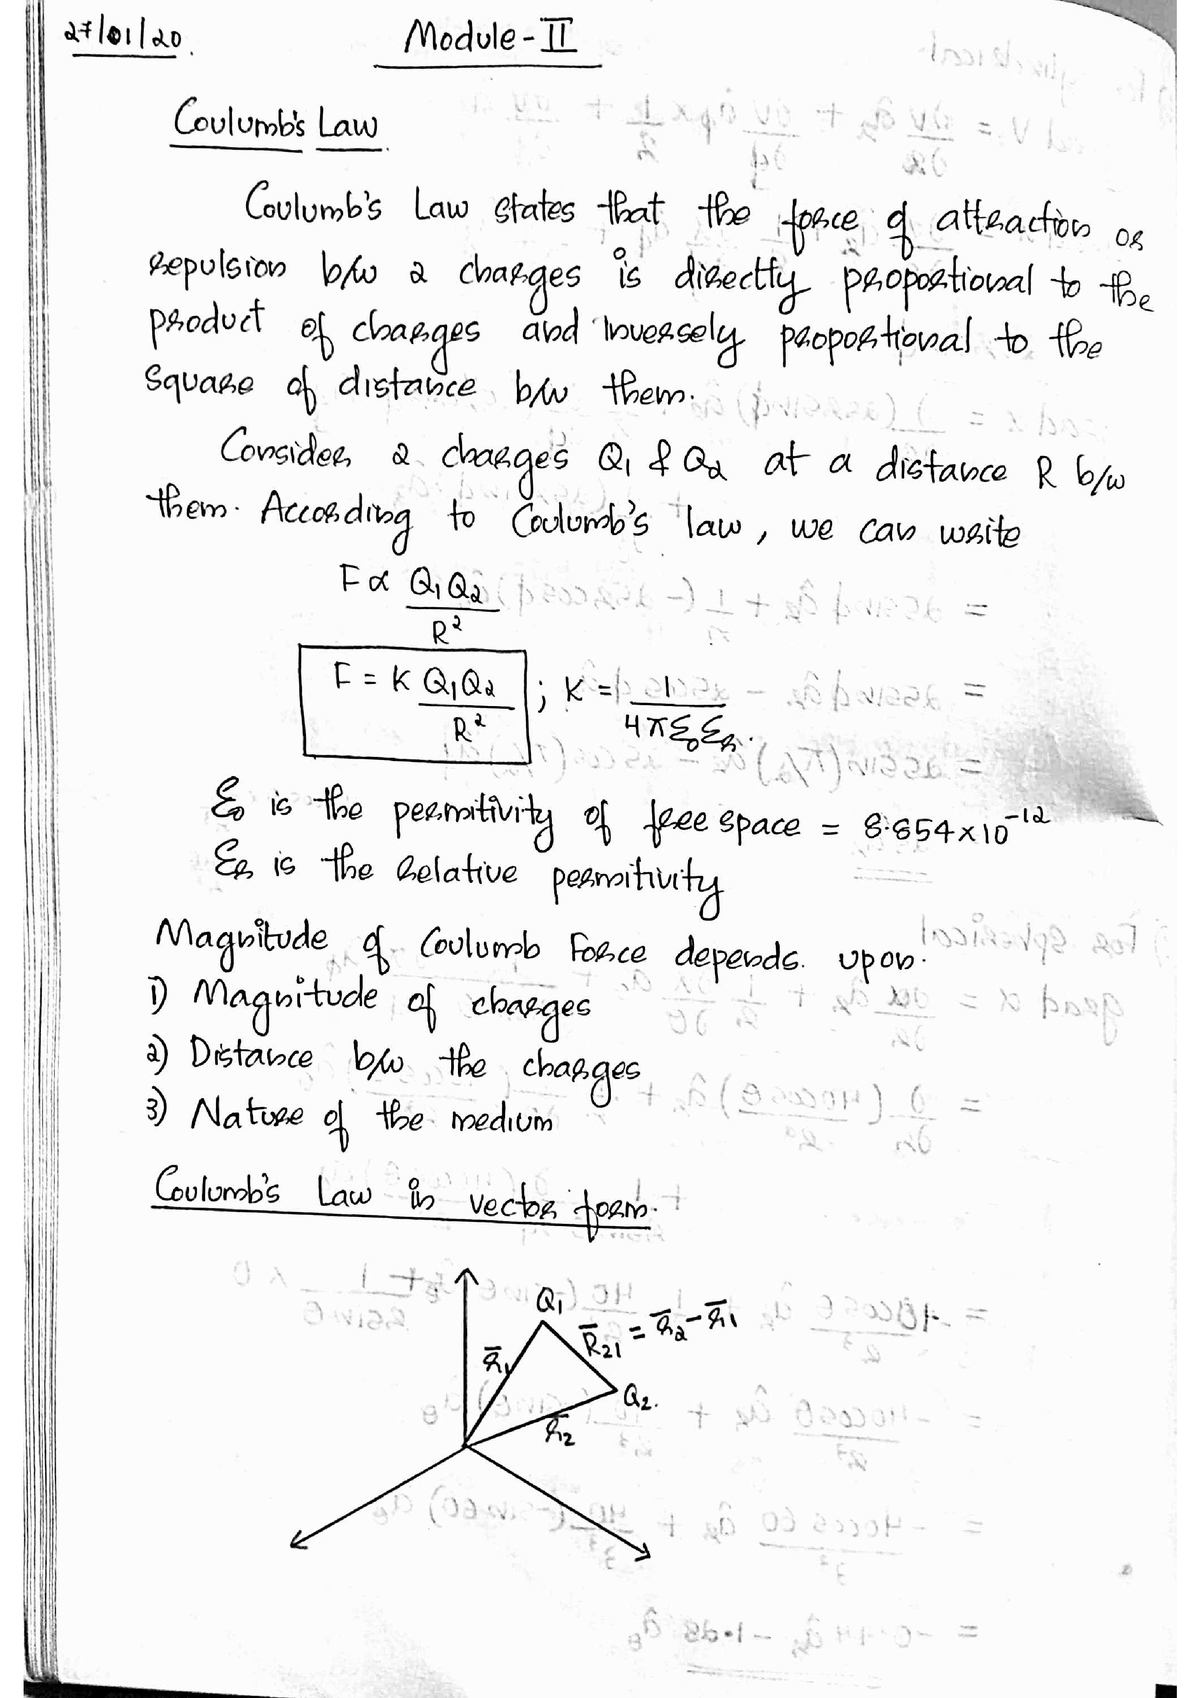 27/01/20.
Module-II
Coulumb's Law
Coulumb's Law states that the force of attraction or
repulsion b/w 2 charges is directly proportional to the
product of charges and Inversely proportional to the
Square of distance b/w them.
Consider 2 charges Q₁ & Q₂ at a distance R b/w
them. According to Coulumb's law, we can write
F ∝ Q₁Q₂/R²
F = K Q₁Q₂/R² ; K = 1/4πε₀εᵣ.
ε₀ is the permitivity of free space = 8.854×10⁻¹²
εᵣ is the relative permitivity
Magnitude of Coulumb Force depends. upon.
1) Magnitude of charges
2) Distance b/w the charges
3) Nature of the medium
Coulumb's Law in vector form.
Q₁
R̄₂₁ = r̄₂ - r̄₁
r̄₁
Q₂.
r̄₂